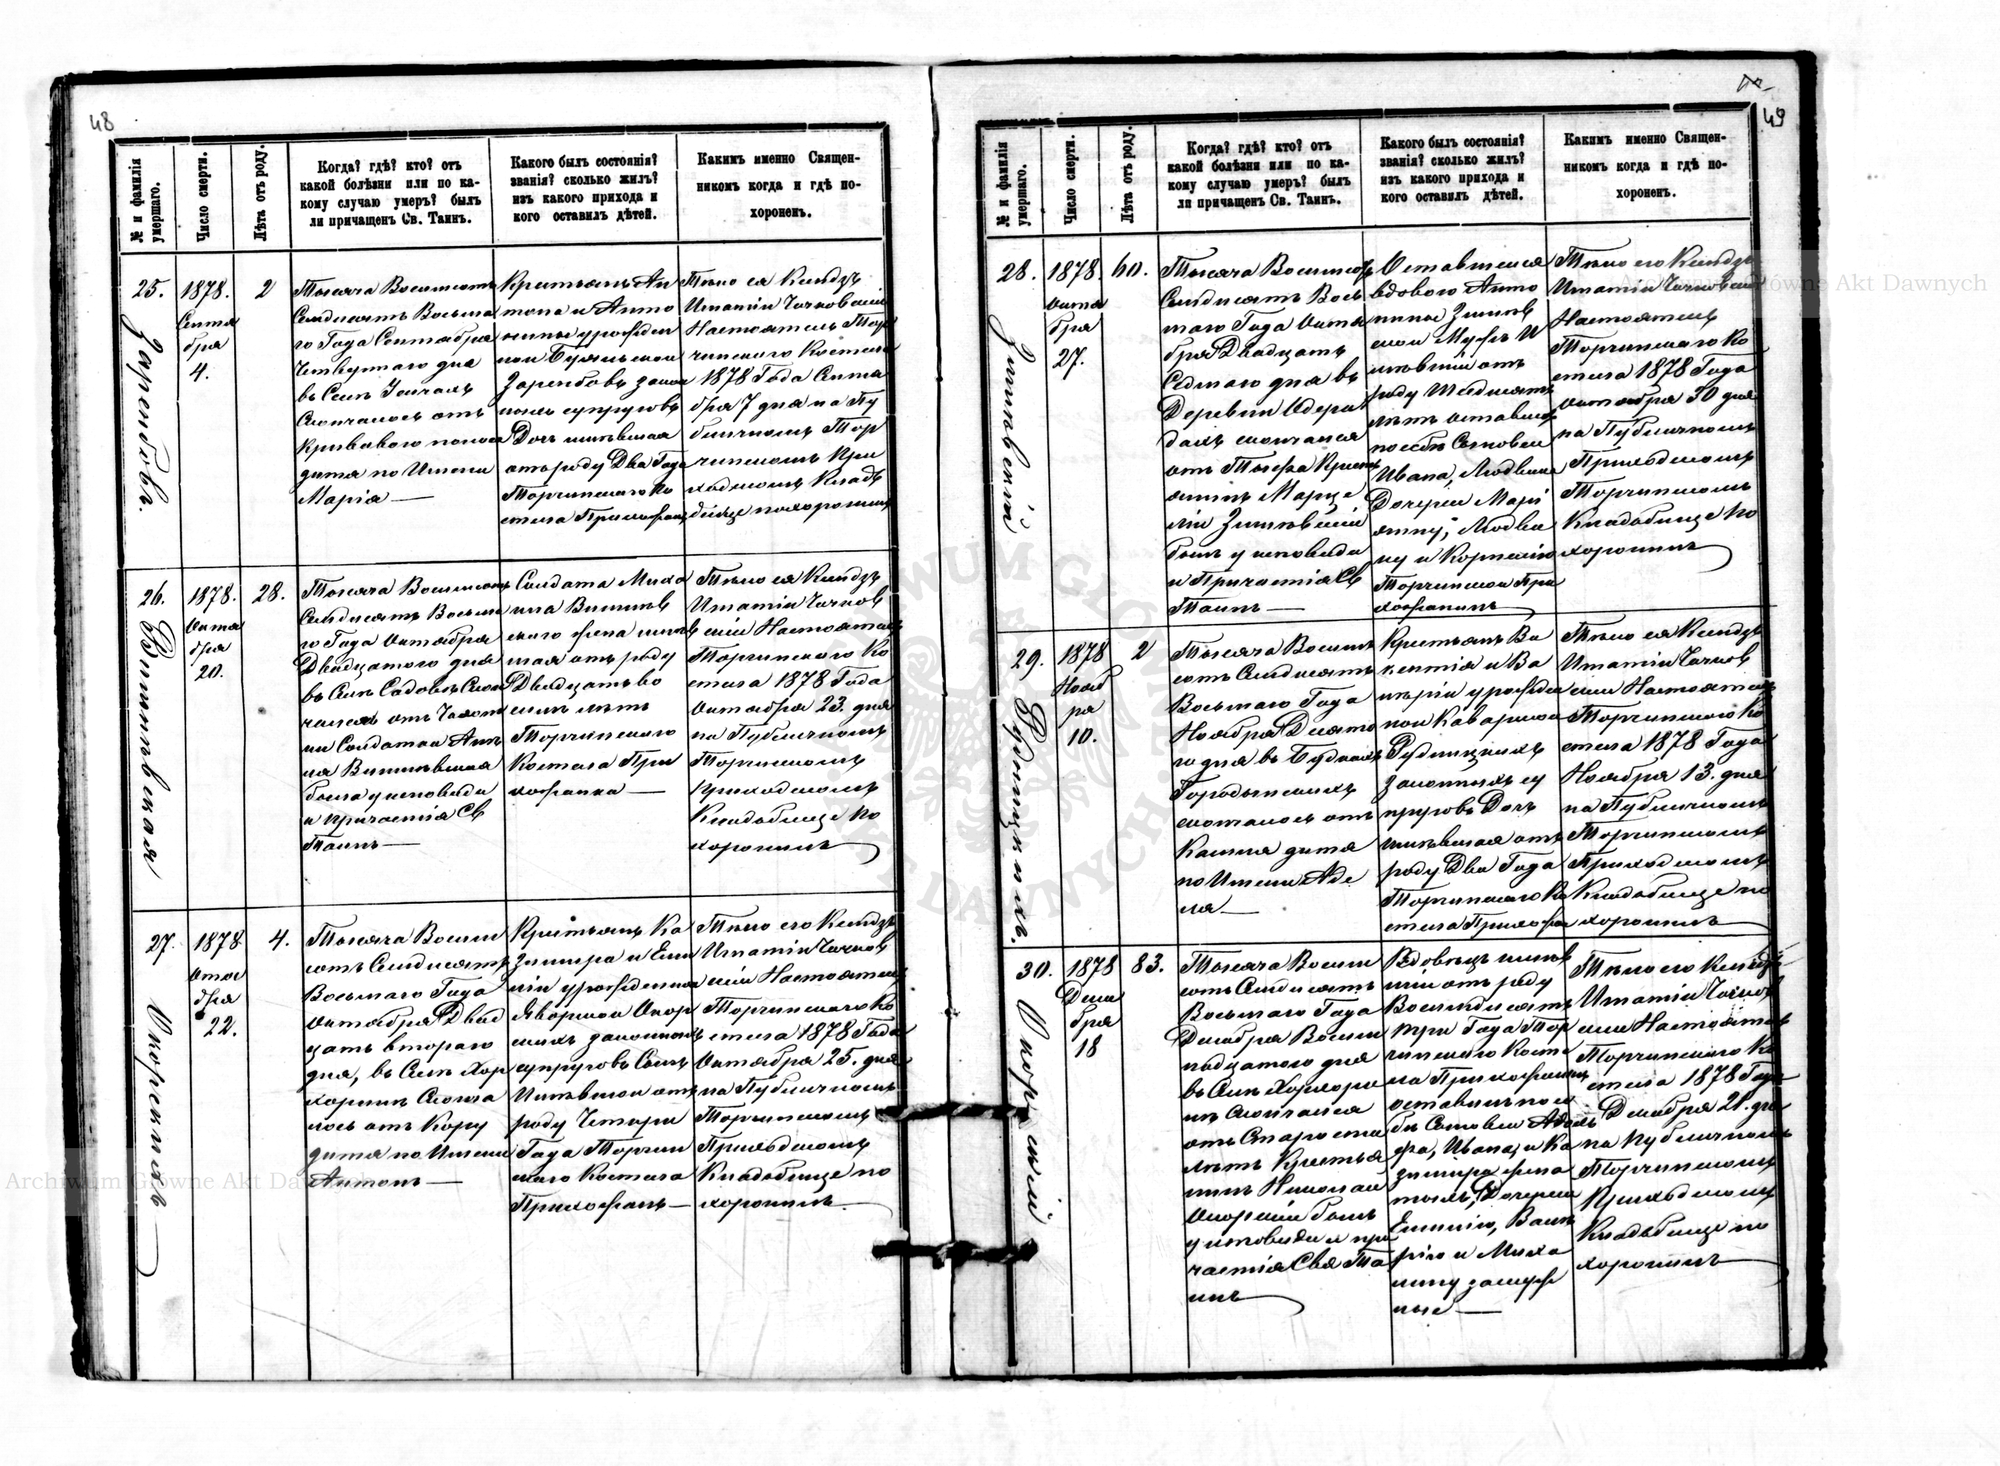 48
№ и фамилія умершаго.
Число смерти.
Лѣта отъ роду.
Когда? гдѣ? кто? отъ
какой болѣзни или по ка-
кому случаю умеръ? былъ
ли причащенъ Св. Таинъ.
Какого былъ состоянія?
званія? сколько жилъ?
изъ какого прихода и
кого оставилъ дѣтей.
Какимъ именно Священ-
никомъ когда и гдѣ по-
хороненъ.
25.
Зарембовъ.
1878.
Сентя
бря
4.
2
Тысяча Восемсотъ
Семдисятъ Восьма
го Года Сентября
Четвертого дня
въ Селѣ
Скончалось отъ
Криваваго поноса
дитя по Имени
Марія
Крестьянъ Ан
тона и Анто
нины урожден
ной
Зарембовъ закон
ныхъ супруговъ
Дочь имѣвшая
отъ роду Два Года
Торчинскаго Ко
стела Прихожанъ
Тѣло ея Ксендзъ
Игнатій
Настоятель Тор
чинского Костела
1878 Года Сентя
бря 7 дня на Пу
бличномъ Тор
чинскомъ При
ходскомъ Клад
бище похоронилъ
26.
Вишнѣвская
1878.
Октя
бря
20.
28.
Тысяча Восемсотъ
Семдисятъ Восьма
го Года Октября
Двадцатого дня
въ Селѣ Садовѣ Скон
чалась отъ Чахот
ки Солдатка Анъ
ля Вишнѣвская
была у исповѣди
и причастія Св
Таинъ
Солдата Миха
ила Вишнѣв
ского жена имѣв
шая отъ роду
Двадцать во
семь лѣтъ
Торчинского
Костела При
хожанка
Тѣло ея Ксендзъ
Игнатій
скій Настоятель
Торчинского Ко
стела 1878 Года
Октября 23. дня
на Публичномъ
Торчинскомъ
приходскомъ
Кладбище по
хоронилъ
27.
Опорскихъ
1878
Октя
бря
22.
4.
Тысяча Восем
сотъ Семдисятъ
Восьмаго Года
Октября Двад
цать втораго
дня, въ Селѣ Хор
хоринѣ Сконча
лось отъ Кору
дитя по Имени
Антонъ
Крестьянъ Ка
зимира и Еми
ліи урожденной
Яворской Опор
скихъ законныхъ
супруговъ Сынъ
Имѣвшой отъ
роду Четыри
Года Торчин
ского Костела
Прихожанъ
Тѣло его Ксендзъ
Игнатій
скій Настоятель
Торчинского Ко
стела 1878 Года
Октября 25. дня
на Публичномъ
Торчинскомъ
Приходскомъ
Кладбище по
хоронилъ
49
№ и фамилія умершаго.
Число смерти.
Лѣта отъ роду.
Когда? гдѣ? кто? отъ
какой болѣзни или по ка-
кому случаю умеръ? былъ
ли причащенъ Св. Таинъ.
Какого былъ состоянія?
званія? сколько жилъ?
изъ какого прихода и
кого оставилъ дѣтей.
Какимъ именно Священ-
никомъ когда и гдѣ по-
хороненъ.
28.
1878.
Октя
бря
27.
60.
Тысяча Восемсотъ
Семдисятъ Вось
маго Года Октя
бря Двадцать
Седмаго дня въ
Деревни Одера
дахъ скончался
отъ Тыфа Крест
янинъ Марце
лій
былъ у исповѣди
и Причастія Св
Таинъ
Оставшейся
вдовою Анто
нины
ской Мужъ И
мѣвшій отъ
роду Шесдисятъ
лѣтъ оставилъ
по себѣ Сыновей
Ивана, Людвика
Дочерей Марі
янну, Людви
ку и Корнелію
Торчинской При
хожанинъ
Тѣло его Ксендзъ
Игнатій
Настоятель
Торчинскаго Ко
стела 1878 Года
Октября 30 дня
на Публичномъ
Приходскомъ
Торчинскомъ
Кладбище по
хоронилъ
29.
Рудницкихъ.
1878
Нояб
ря
10.
2
Тысяча Восем
сотъ Семдисятъ
Восьмаго Года
Ноября Десято
го дня въ Будкахъ
Городынскихъ
скончалось отъ
Кашля дитя
по Имени Аде
ля
Крестьянъ Ви
кентія и Ва
лѣріи урожден
ной
Рудницкихъ
Законныхъ су
пруговъ Дочь
имѣвшая отъ
роду Два Года
Торчинского Ко
стела Прихожан
Тѣло ея Ксендзъ
Игнатій
скій Настоятель
Торчинского Ко
стела 1878 Года
Ноября 13. дня
на Публичномъ
Торчинскомъ
Приходскомъ
Кладбище по
хоронилъ
30.
Опорскій
1878
Дека
бря
18
83.
Тысяча Восем
сотъ Семдисятъ
Восьмаго Года
Декабря Восем
надцатого дня
въ Селѣ Хорхори
нѣ Скончался
отъ Старости
лѣтъ Крестья
нинъ Николай
Опорскій былъ
у исповѣди и при
частія Свя Та
инъ
Вдовецъ имѣв
шій отъ роду
Восемдисятъ
три Года Тор
чинского Косте
ла Прихожанинъ
оставилъ по се
бѣ Сыновей Адоль
фа, Ивана и Ка
зимира жена
тыхъ, Дочерей
Емилію, Валѣ
рію и Миха
лину замуж
ные
Тѣло его Ксендзъ
Игнатій
скій Настоятель
Торчинского Ко
стела 1878 Года
Декабря 21. дня
на Публичномъ
Торчинскомъ
Приходскомъ
Кладбище по
хоронилъ
Archiwum Główne Akt Dawnych
Archiwum Główne Akt Dawnych
ARCHIWUM GŁÓWNE AKT DAWNYCH